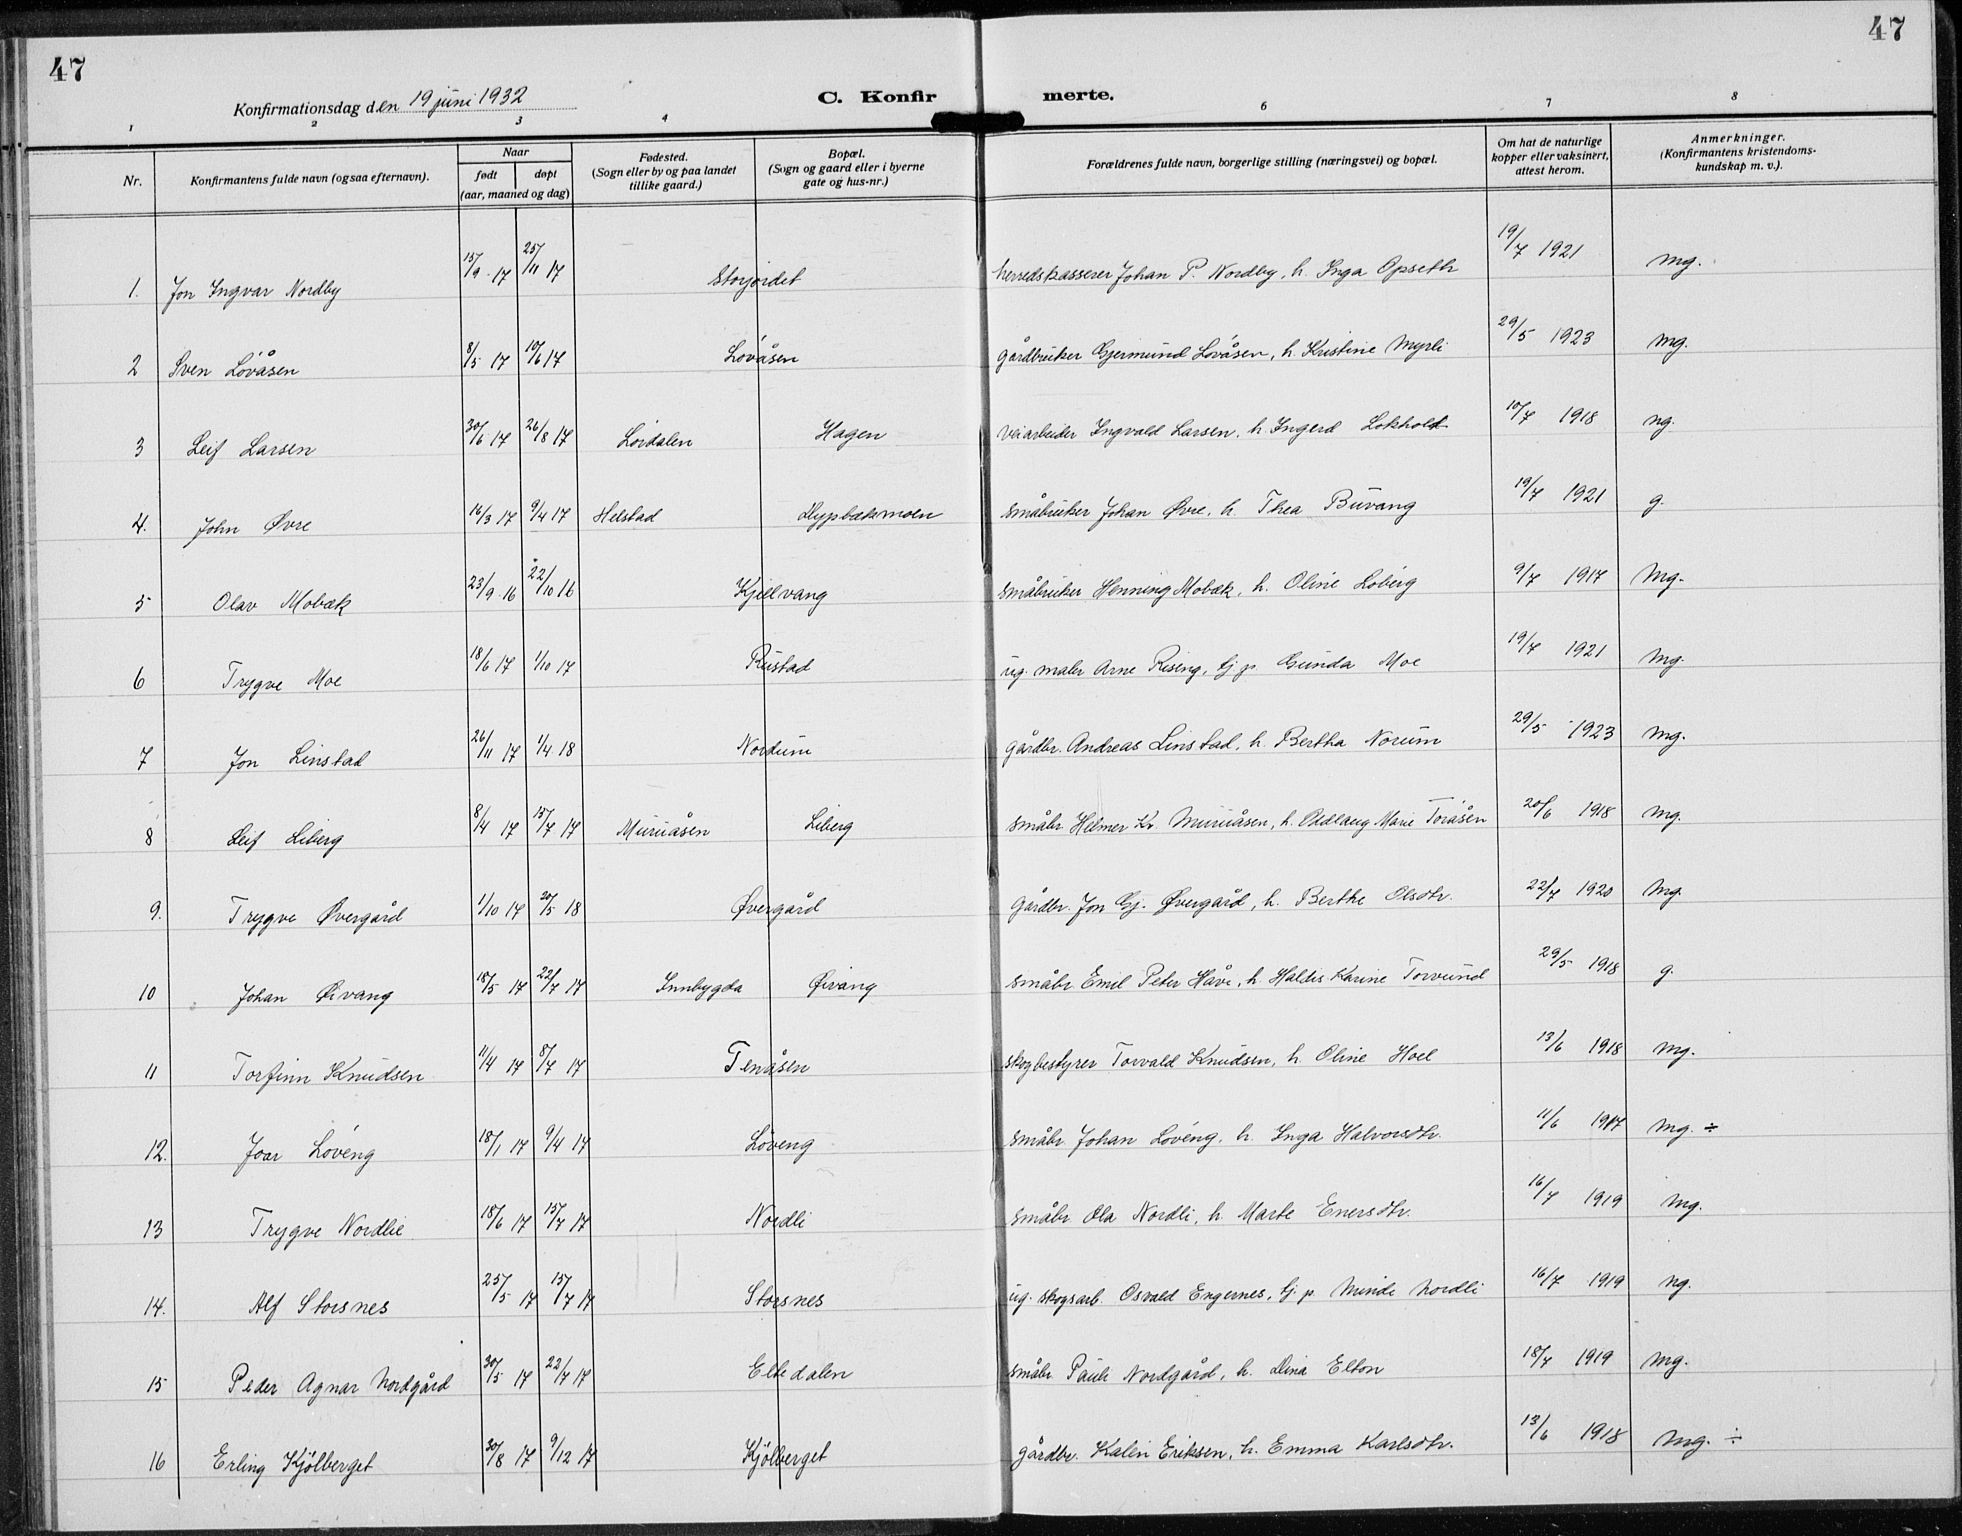 47
47
Konfirmationsdag den 19 juni 1932
C. Konfirmerte.
1 2 3 4 6 7 8
Nr.
Konfirmantens fulde navn (ogsaa efternavn).
Naar
født døpt
(aar, maaned og dag)
Fødested.
(Sogn eller by og paa landet
tillike gaard.)
Bopæl.
(Sogn og gaard eller i byerne
gate og hus-nr.)
Forældrenes fulde navn, borgerlige stilling (næringsvei) og bopæl.
Om hat de naturlige
kopper eller vaksinert,
attest herom.
Anmerkninger.
(Konfirmantens kristendoms-
kundskap m. v.).
1. Jon Ingvar Nordby 15/9 17 25/11 17 Storjordet herredskasserer Johan P. Nordby, h. Inga Opseth 19/7 1921 mg.
2 Sven Løvåsen 8/5 17 10/6 17 Løvåsen gårdbruker Gjermund Løvåsen, h. Kristine Myrli 29/5 1923 mg.
3 Leif Larsen 30/6 17 26/8 17 Lørdalen Hagen veiarbeider Ingvald Larsen, h. Ingerd Lokholt 10/7 1918 ng.
4. John Øvre 16/3 17 9/4 17 Helstad Dypbæksmoen småbruker Johan Øvre, h. Thea Buvang 19/7 1921 g.
5 Olav Mobæk 23/9 16 22/10 16 Kjellvang småbruker Henning Mobæk, h. Oline Loberg 9/7 1917 Mg.
6 Trygve Moe 18/6 17 1/10 17 Rustad ug. maler Arne Rising, Gj. p. Gunda Moe 19/7 1921 mg.
7 Jon Linstad 26/11 17 1/4 18 Nordum gårdbr. Andreas Linstad, h. Bertha Norum 29/5 1923 mg.
8 Leif Liberg 8/4 17 15/7 17 Muruåsen Liberg småbr. Helmer Kr. Muruåsen, h. Oddlaug Marie Toråsen 20/6 1918 mg.
9. Trygve Øvergård 1/10 17 20/5 18 Øvergård Gårdbr. Jon Gj. Øvergård, h. Berthe Olsdtr. 22/7 1920 Mg.
10 Johan Øivang 18/5 17 22/7 17 Innbygda Øivang småbr. Emil Peter Håve, h. Haldis Karine Torvund 29/5 1918 g.
11 Torfinn Knudsen 11/4 17 8/7 17 Tenåsen skogbestyrer Torvald Knudsen, h. Oline Hoel 13/6 1918 mg.
12. Joar Løveng 18/1 17 9/4 17 Løveng småbr. Johan Løveng, h. Inga Halvorsdtr. 11/6 1917 mg. ÷
13 Trygve Nordlie 18/6 17 15/7 17 Nordli småbr. Ola Nordli, h. Marte Enersdtr. 16/7 1919 mg.
14. Alf Storsnes 25/5 17 15/7 17 Storsnes ug. skogsarb. Osvald Engernes, Gj. p. Minde Nordli 16/7 1919 ng.
15 Peder Agnar Nordgård 30/5 17 22/7 17 Eltedalen småbr. Pauli Nordgård, h. Dina Elton 18/7 1919 mg.
16 Erling Kjølberget 30/8 17 9/12 17 Kjølberget gårdbr. Kalin Eriksen, h. Emma Karlsdtr. 13/6 1918 mg. ÷